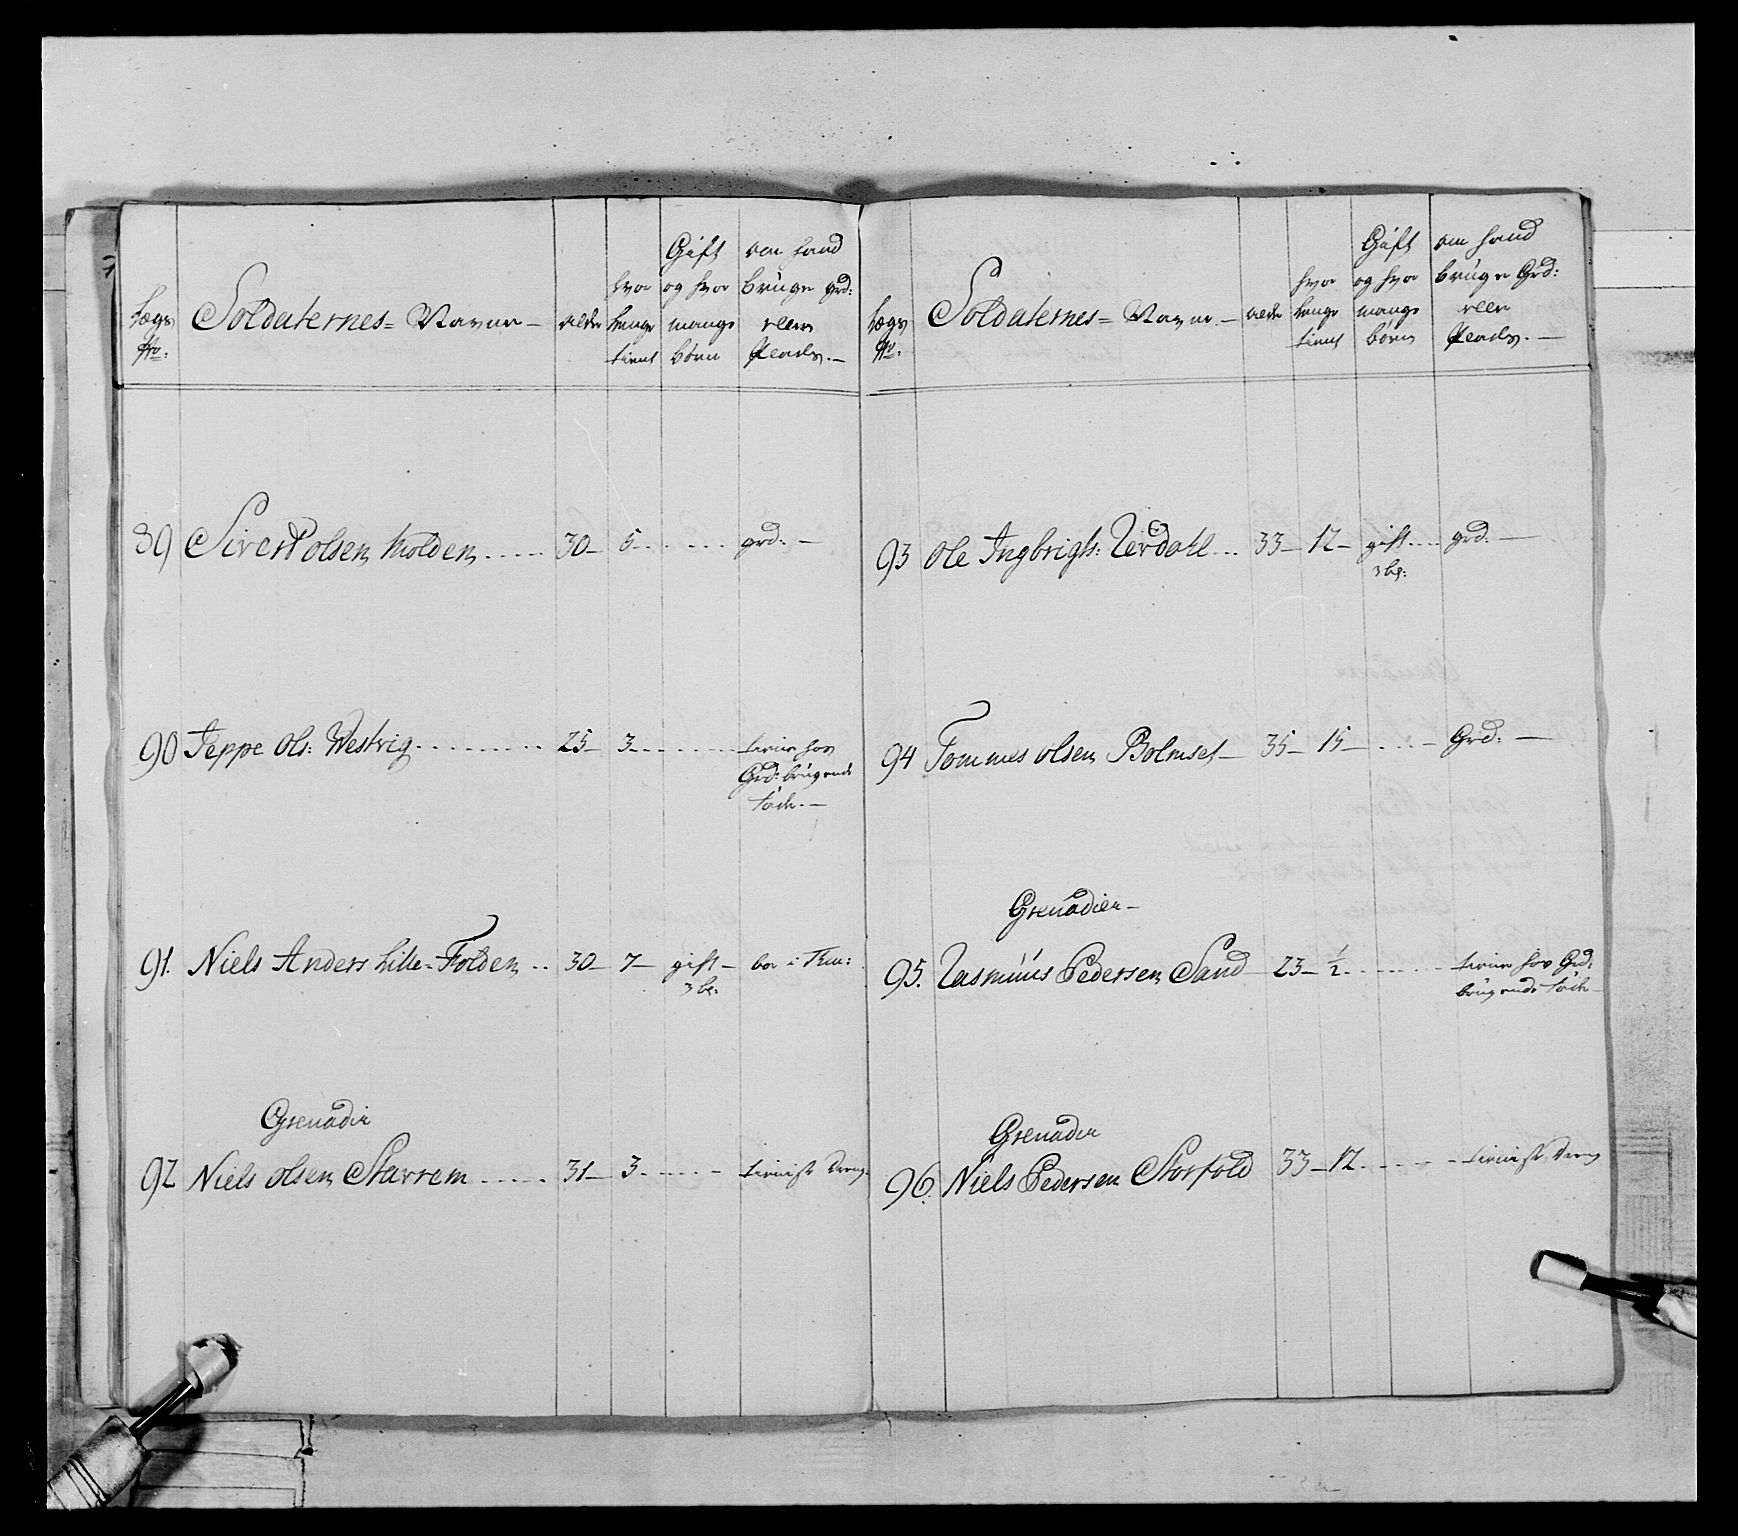 Lægs No:
Soldaternes= Navne —
alder
hvor længe tient
Gift og hvor mange børn
om hand bruger grd: eller Plads. —
89 Sivert olsen Molden ..... 30 — 5 ..... grd: —
90 Jeppe Ols: Westvig ......... 25 — 3 ...... tiener hos
Grd: brugende
fader. —
91. Niels Anders Lille=Folden .. 30 — 7 — gift — boer i
3 b:
Grenadier
92 Niels olsen Starrem ..... 31 — 3 ..... — tieniste dreng
Lægs No:
Soldaternes= Navne —
alder
hvor længe tient
Gift og hvor mange børn
om hand bruger Grd: eller Plads. —
93 Ole Ingbrigts: Uerdahl ... 33 — 12 — gift .... grd. —
3 b:
94 Tommes olsen Bolmset — 35 — 15 — .... — Grd: —
Grenadier —
95. Rasmuus Pedersen Sand 23 — ½ ...... tiener hos Grd:
brugende fader —
Grenadier
96. Niels Pedersen Storfold 33 — 12 ..... tieniste dreng